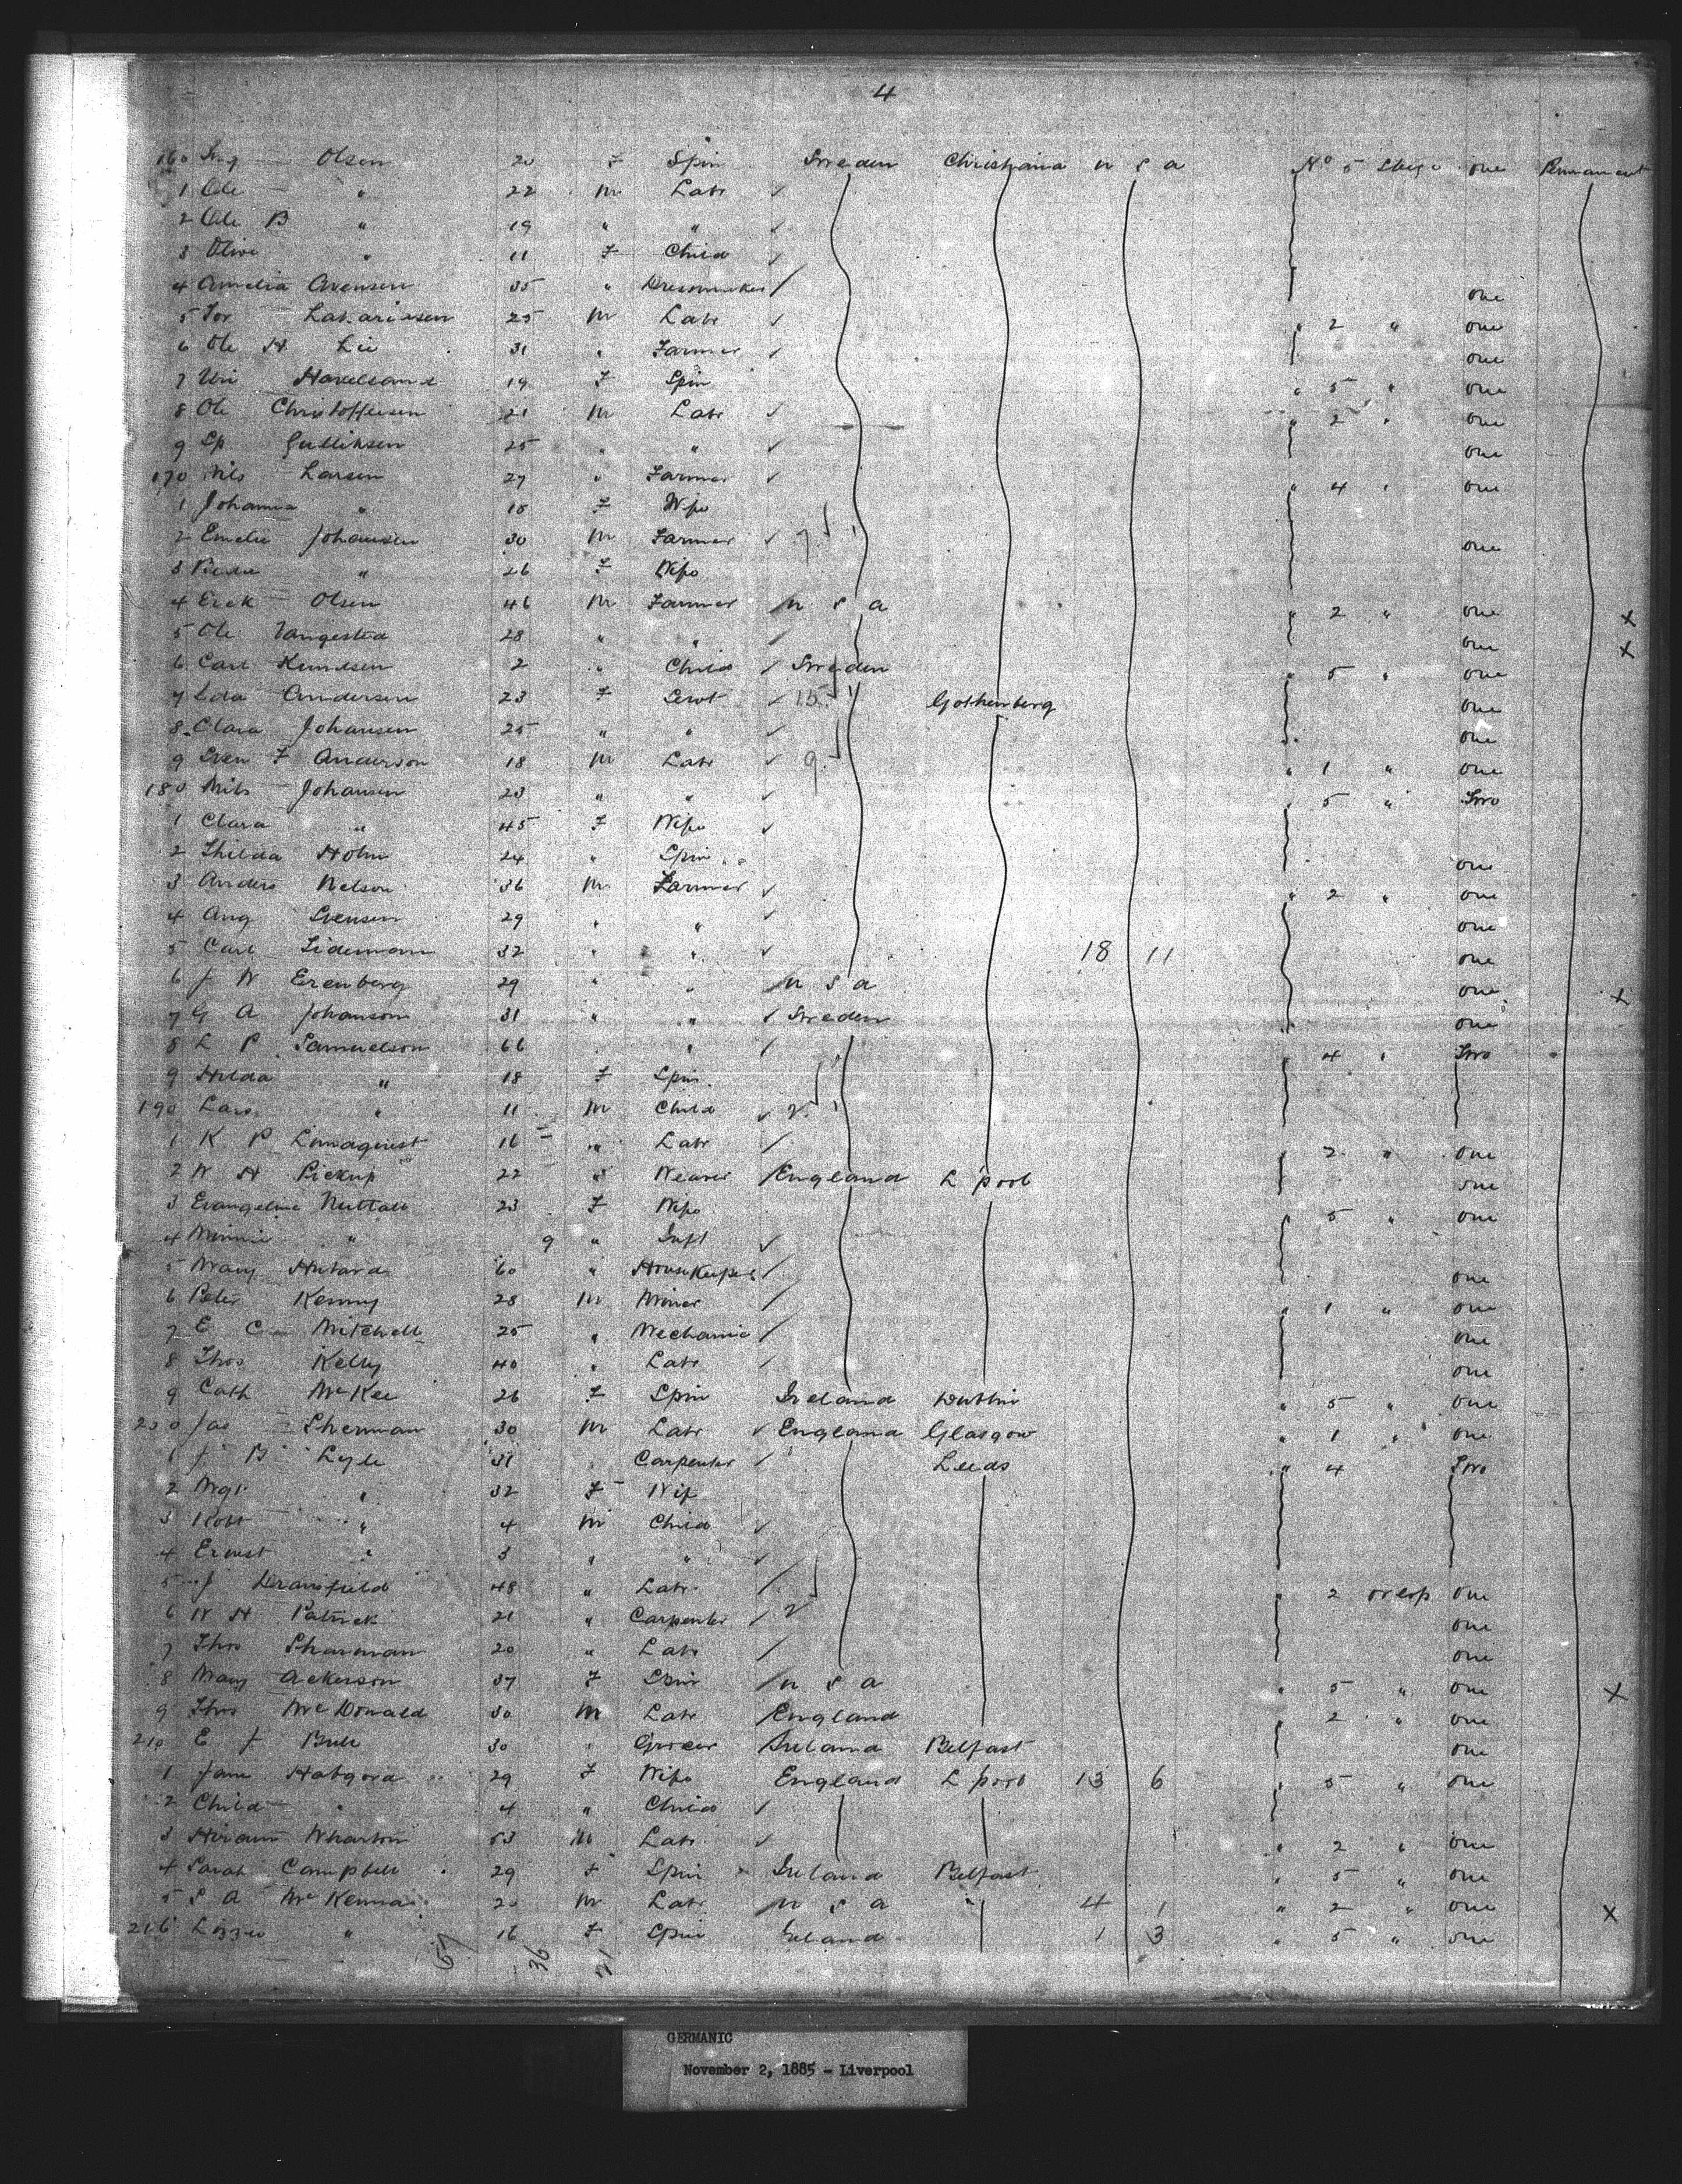 4
160 Ing Olsen 20 F Spin Sweden Christiania U S A No 5 Stege one Permanent
1 Ole " 22 M Labr ✓
2 Ole B " 19 " " ✓
3 Olive " 11 F Child ✓
4 Amelia Arensen 35 " Dressmaker / one
5 Tor Zakariesen 25 M Labr ✓ " 2 " one
6 Ole H Lie 31 " Farmer ✓ one
7 19 F Spin " 5 " one
8 Ole Christoffersen 21 M Labr ✓ " 2 " one
9 Gulliksen 25 " " ✓ one
170 Nils Larsen 27 " Farmer ✓ " 4 " one
1 Johanna " 18 F Wife
2 Johansen 30 M Farmer ✓ 7 one
3 " 26 F Wife
4 Erek Olsen 46 M Farmer / U S A " 2 " one X
5 Ole 28 " " / one X
6 Carl Knudsen 2 " Child / Sweden " 5 " one
7 Ida Andersen 23 F Servt ✓ 15 Gothenberg one
8 Clara Johansen 25 " " ✓ one
9 Sven F Anderson 18 M Labr ✓ 9 " 1 " one
180 Nils Johansen 23 " " ✓ " 5 " Two
1 Clara " 45 F Wife ✓
2 Thilda Holm 24 " Spin one
3 Anders Nelson 36 M Farmer ✓ " 2 " one
4 Aug Svensen 29 " " ✓ one
5 Carl Lideman 32 " " ✓ 18 11 one
6 J W Erenberg 29 " " / U S A one X
7 G A Johanson 31 " " / Sweden one
8 L P Samuelson 66 " " / " 4 " Two
9 Hilda " 18 F Spin
190 Lars " 11 M Child ✓ 2
1 K P Lindquist 16 " Labr / " 2 " one
2 W H Pickup 22 " Weaver / England L'pool one
3 Evangeline Nuttall 23 F Wife " 5 " one
4 Minnie " 9 " Inft ✓
5 Mary 60 " Housekeeper / one
6 Peter Kenny 28 M Miner / " 1 " one
7 E C Mitchell 25 " Mechanic / one
8 Thos Kelly 40 " Labr / one
9 Cath McKee 26 F Spin Ireland Dublin " 5 " one
200 Jas Sherman 30 M Labr ✓ England Glasgow " 1 " one
1 J B Lyle 31 Carpenter / Leeds " 4 Two
2 Mgt " 32 F Wif
3 Robt " 4 M Child ✓
4 Ernest " 3 " " ✓
5 J Dransfield 48 " Labr / " 2 orlop one
6 W H Patrick 21 " Carpenter / 2 one
7 Thos Sharman 20 " Labr / one
8 Mary Ackerson 37 F Spin / U S A " 5 " one X
9 Thos McDonald 30 M Labr / England " 2 " one
210 E J Bell 30 " Grocer Ireland Belfast one
1 Jane Habgood 29 F Wife England L'pool 13 6 " 5 " one
2 Child " 4 " Child ✓
3 Hiram Wharton 53 M Labr ✓ " 2 " one
4 Sarah Campbell 29 F Spin Ireland Belfast " 5 " one
5 S A McKenna 20 M Labr / U S A " 4 1 " 2 " one X
216 Lizzie " 16 F Spin Ireland 1 3 " 5 " one
57 36 21
GERMANIC
November 2, 1885 - Liverpool